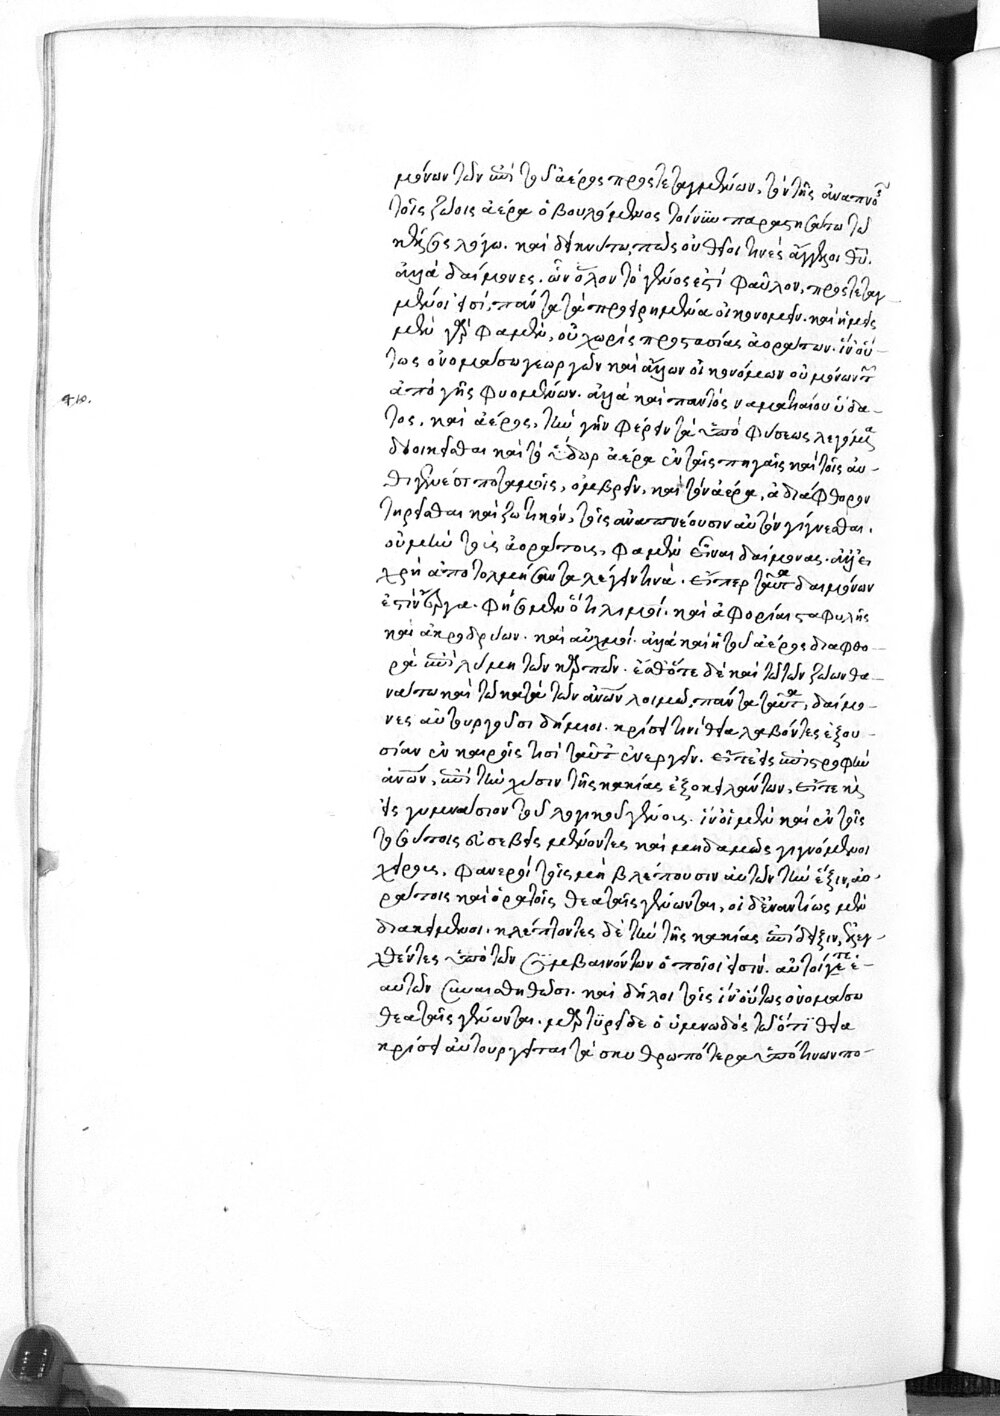 μόνων τῶν ἐπὶ τοῦ ἀέρος προστεταγμένων, τὸν τῆς ἀναπνοῆς
τοῖς ζώοις ἀέρα ὁ βουλόμενος τοίνυν παραστησάτω τῷ
κτήσεως λόγῳ. καὶ δεικνύτω, πῶς οὐ θεοί τινες ἄγγελοι θυ.
ἀλλὰ δαίμονες. ὧν ὅλον τὸ γένος ἐστὶ φαῦλον, προστεταγ-
μένοι εἰσί, πάντα τὰ προειρημένα οἰκονομεῖν. καὶ ἡμεῖς
μὲν γάρ φαμεν, οὐ χωρὶς προστασίας ἀοράτων. ἵν' οὕ-
τως ὀνομάσω γεωργῶν καὶ ἄλλων οἰκονόμων οὐ μόνων τῶν
ἀπὸ γῆς φυομένων. ἀλλὰ καὶ παντὸς ναματιαίου ὕδα-
το.
τος, καὶ ἀέρος, τὴν γῆν φέρειν τὰ ὑπὸ φύσεως λεγόμενα
διοικεῖσθαι καὶ τὸ ὕδωρ ἀέρα ἐν ταῖς πηγαῖς καὶ τοῖς αὐ-
θιγενέσι ποταμοῖς, ὀμβρεῖν, καὶ τὸν ἀέρα, ἀδιάφθορον
τηρεῖσθαι καὶ ζωτικὸν, τοῖς ἀναπνέουσιν αὐτὸν γίγνεσθαι.
οὐ μὲν τοὺς ἀοράτους, φαμὲν εἶναι δαίμονας. ἀλλ' εἰ
χρὴ ἀποτολμήσαντα λέγειν τινὰ. εἴπερ ταῦτα δαιμόνων
ἐστὶν ἔργα. φήσομεν ὅτι λιμοί. καὶ ἀφορίαι σταφυλῆς
καὶ ἀκροδρύων. καὶ αὐχμοί. ἀλλὰ καὶ ἡ τοῦ ἀέρος διαφθο-
ρὰ ἐπὶ λύμῃ τῶν καρπῶν. ἔσθ' ὅτε δὲ καὶ τῷ τῶν ζώων θα-
νάτῳ καὶ τῷ κατὰ τῶν ἀνῶν λοιμῷ, πάντα ταῦτα, δαίμο-
νες αὐτουργοῦσι δήμιοι. κρίσει τινὶ θείᾳ λαβόντες ἐξου-
σίαν ἐν καιροῖς τισὶ ταῦτα ἐνεργεῖν. εἴτε εἰς ἐπιστροφὴν
ἀνῶν, ἐπὶ τὴν χύσιν τῆς κακίας ἐξοκειλάντων, εἴτε καὶ
εἰς γυμνάσιον τοῦ λογικοῦ γένους. ἵν' οἱ μὲν καὶ ἐν τοῖς
τοσούτοις εὐσεβεῖς μένοντες καὶ μηδαμῶς γιγνόμενοι
χείρους, φανεροὶ τοῖς μὴ βλέπουσιν αὐτῶν τὴν ἕξιν, ἀο-
ράτοις καὶ ὁρατοῖς θεαταῖς γένωνται, οἱ δ' ἐναντίως μὲν
διακείμενοι. κλέπτοντες δὲ τὴν τῆς κακίας ἐπίδειξιν, ἐλεγ-
χθέντες ὑπὸ τῶν συμβαινόντων ὁποῖοί εἰσιν. αὐτοί τε ἑ-
αυτῶν συναισθηθῶσι. καὶ δῆλοι τοῖς ἵν' οὕτως ὀνομάσω
θεαταῖς γένωνται. μαρτυρεῖ δὲ ὁ ὑμνῳδὸς τῷ ὅτι θείᾳ
κρίσει αὐτουργεῖται τὰ σκυθρωπότερα ὑπό τινων πο-